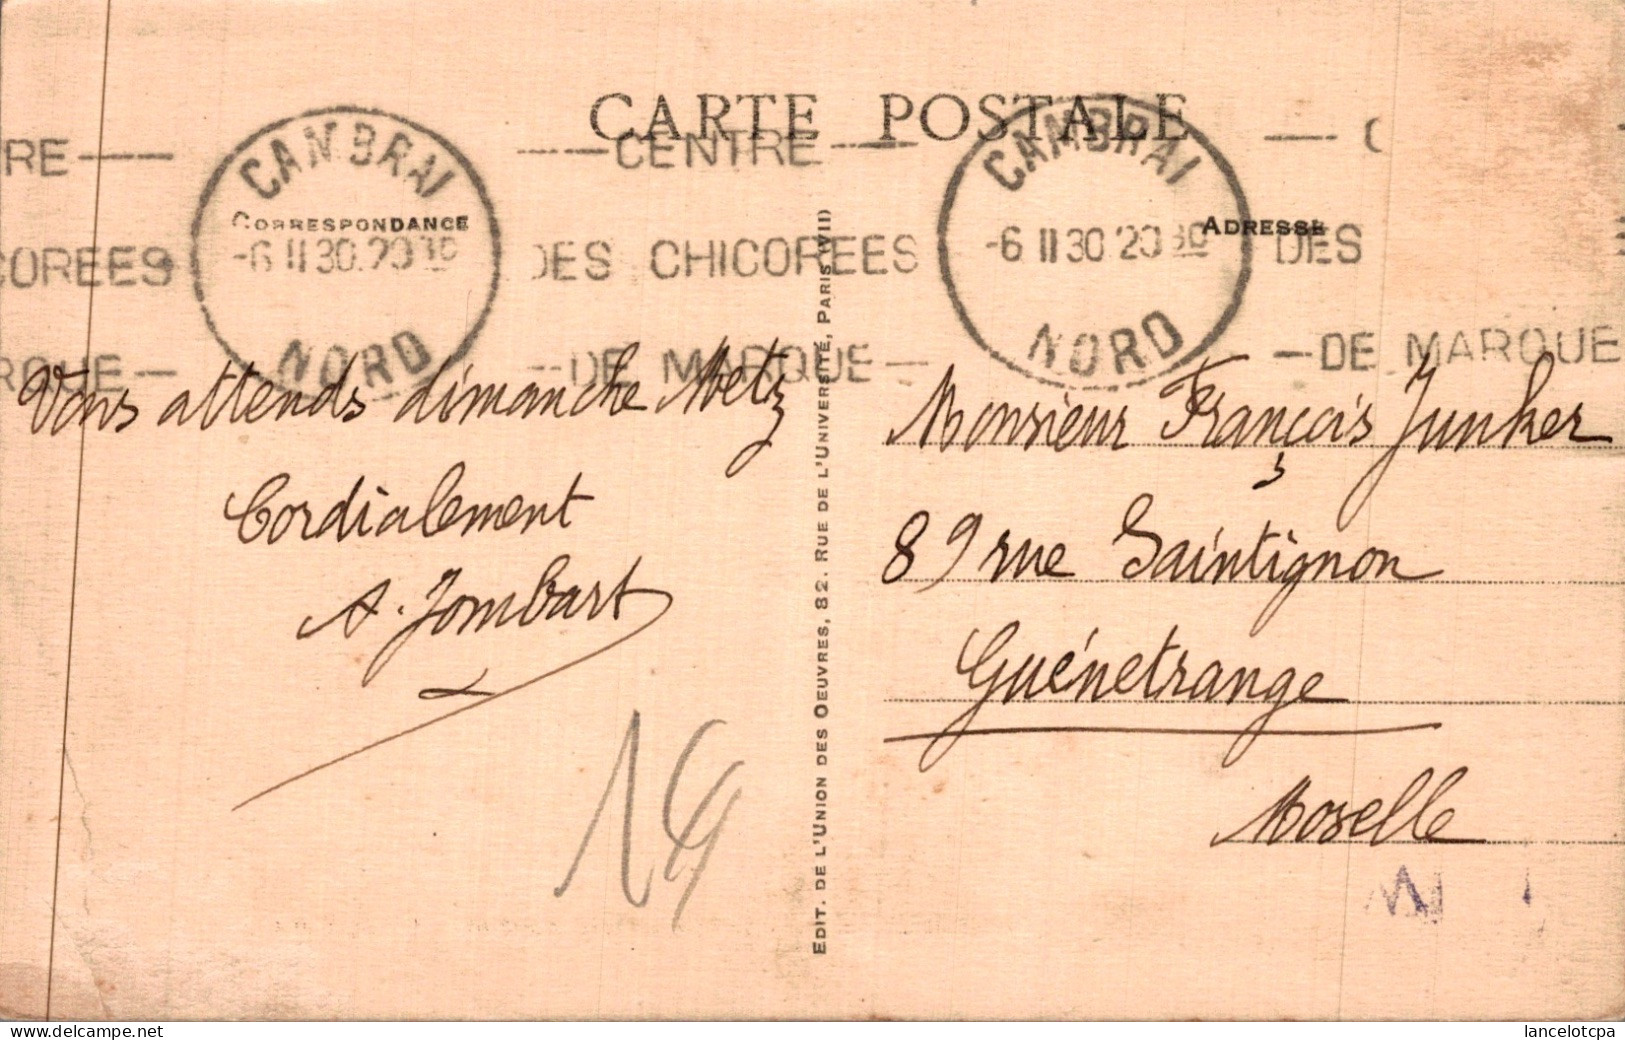 CARTE POSTALE
RE
CENTRE
C
CAMBRAI
CAMBRAI
CORRESPONDANCE
ADRESSE
-6 II 30.20 30
-6 II 30 20 30
COREES
DES CHICOREES
DES
NORD
NORD
RQUE
DE MARQUE
DE MARQUE
Vous attends dimanche Metz
Cordialement
A. Jombart
14
EDIT. DE L'UNION DES OEUVRES, 82. RUE DE L'UNIVERSITÉ, PARIS (VII)
Monsieur François Junker
89 rue Saintignon
Guénetrange
Moselle
lancelotcpa